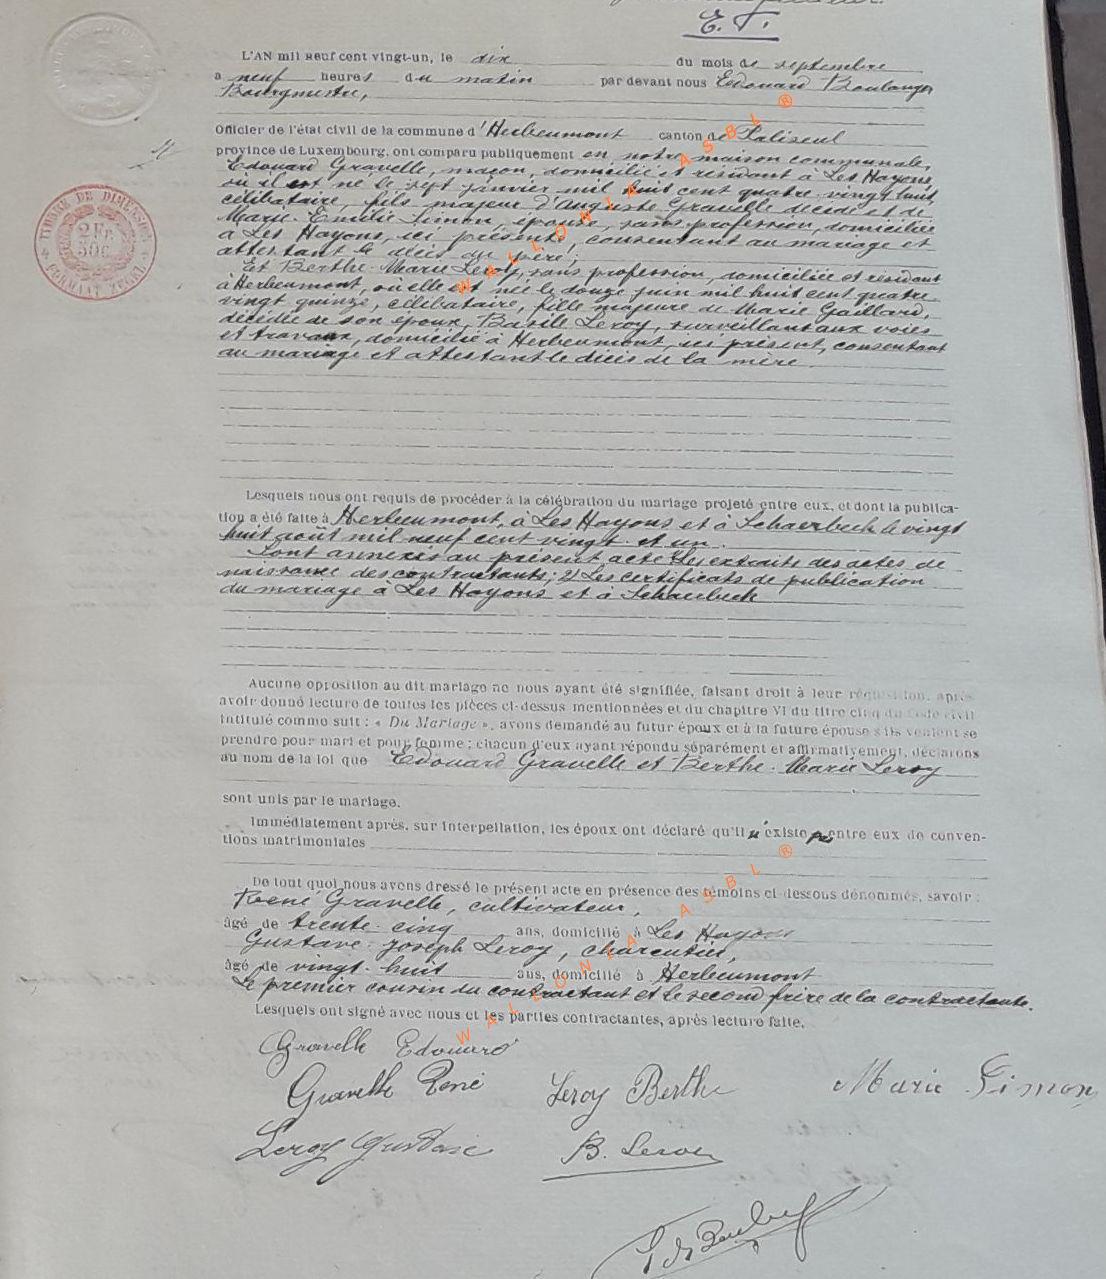 E. F.
L'AN mil neuf cent vingt-un, le dix du mois de septembre
a neuf heures du matin par devant nous Edouard Boulanger
Bourgmestre,
Officier de l'état civil de la commune d'Herbeumont canton de Paliseul
province de Luxembourg, ont comparu publiquement en notre maison communale,
Edouard Gravelle, maçon, domicilié et résidant à Les Hayons
où il est né le sept janvier mil huit cent quatre-vingt huit,
célibataire, fils majeur d'Auguste Gravelle décédé et de
Marie-Emilie Simon, épouse, sans profession, domiciliée
à Les Hayons, ici présente, consentant au mariage et
attestant le décès du père;
Et Berthe-Marie Leroy, sans profession, domiciliée et résidant
à Herbeumont, où elle est née le douze juin mil huit cent quatre-
vingt quinze, célibataire, fille majeure de Marie Gaillard,
décédée de son époux, Basile Leroy, surveillant aux voies
et travaux, domicilié à Herbeumont, ici présent, consentant
au mariage et attestant le décès de la mère.
Lesquels nous ont requis de procéder à la célébration du mariage projeté entre eux, et dont la publica-
tion a été faite à Herbeumont, à Les Hayons et à Schaerbeek le vingt
huit août mil neuf cent vingt et un.
Sont annexés au présent acte les extraits des actes de
naissance des contractants; 2) Les certificats de publication
du mariage à Les Hayons et à Schaerbeek
Aucune opposition au dit mariage ne nous ayant été signifiée, faisant droit à leur réquisition, après
avoir donné lecture de toutes les pièces ci-dessus mentionnées et du chapitre VI du titre cinq du Code civil
intitulé comme suit : « Du Mariage », avons demandé au futur époux et à la future épouse s'ils veulent se
prendre pour mari et pour femme ; chacun d'eux ayant répondu séparément et affirmativement, déclarons
au nom de la loi que Edouard Gravelle et Berthe-Marie Leroy
sont unis par le mariage.
Immédiatement après, sur interpellation, les époux ont déclaré qu'il n'existe pas entre eux de conven-
tions matrimoniales
De tout quoi nous avons dressé le présent acte en présence des témoins ci-dessous dénommés, savoir :
René Gravelle, cultivateur,
âgé de trente-cinq ans, domicilié à Les Hayons
Gustave-Joseph Leroy, charcutier,
âgé de vingt-huit ans, domicilié à Herbeumont
Le premier cousin du contractant et le second frère de la contractante.
Lesquels ont signé avec nous et les parties contractantes, après lecture faite.
Gravelle Edouard
Gravelle René Leroy Berthe Marie Simon
Leroy Gustave B. Leroy
TIMBRE DE DIMENSION
2 Fr.
50 C.
FORMAAT ZEGEL
WALLONIA ASBL ®
WALLONIA ASBL ®